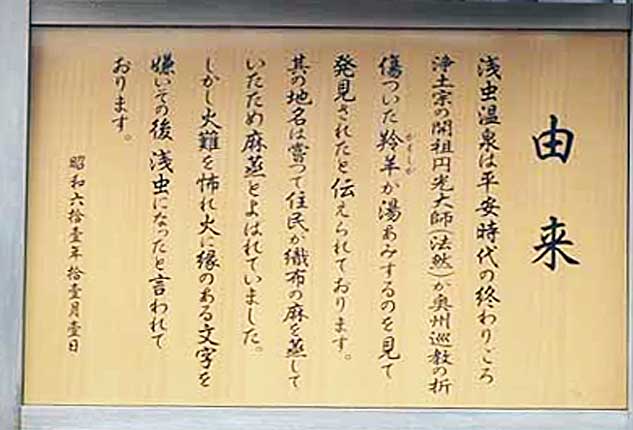 由来
浅虫温泉は平安時代の終わりごろ
浄土宗の開祖円光大師(法然)が奥州巡教の折
傷ついた羚羊が湯あみするのを見て
かもしか
発見されたと伝えられております。
其の地名は嘗つて住民が織布の麻を蒸して
いたため麻蒸とよばれていました。
しかし火難を怖れ火に縁のある文字を
嫌いその後浅虫になったと言われて
おります。
昭和六拾壹年拾壹月壹日